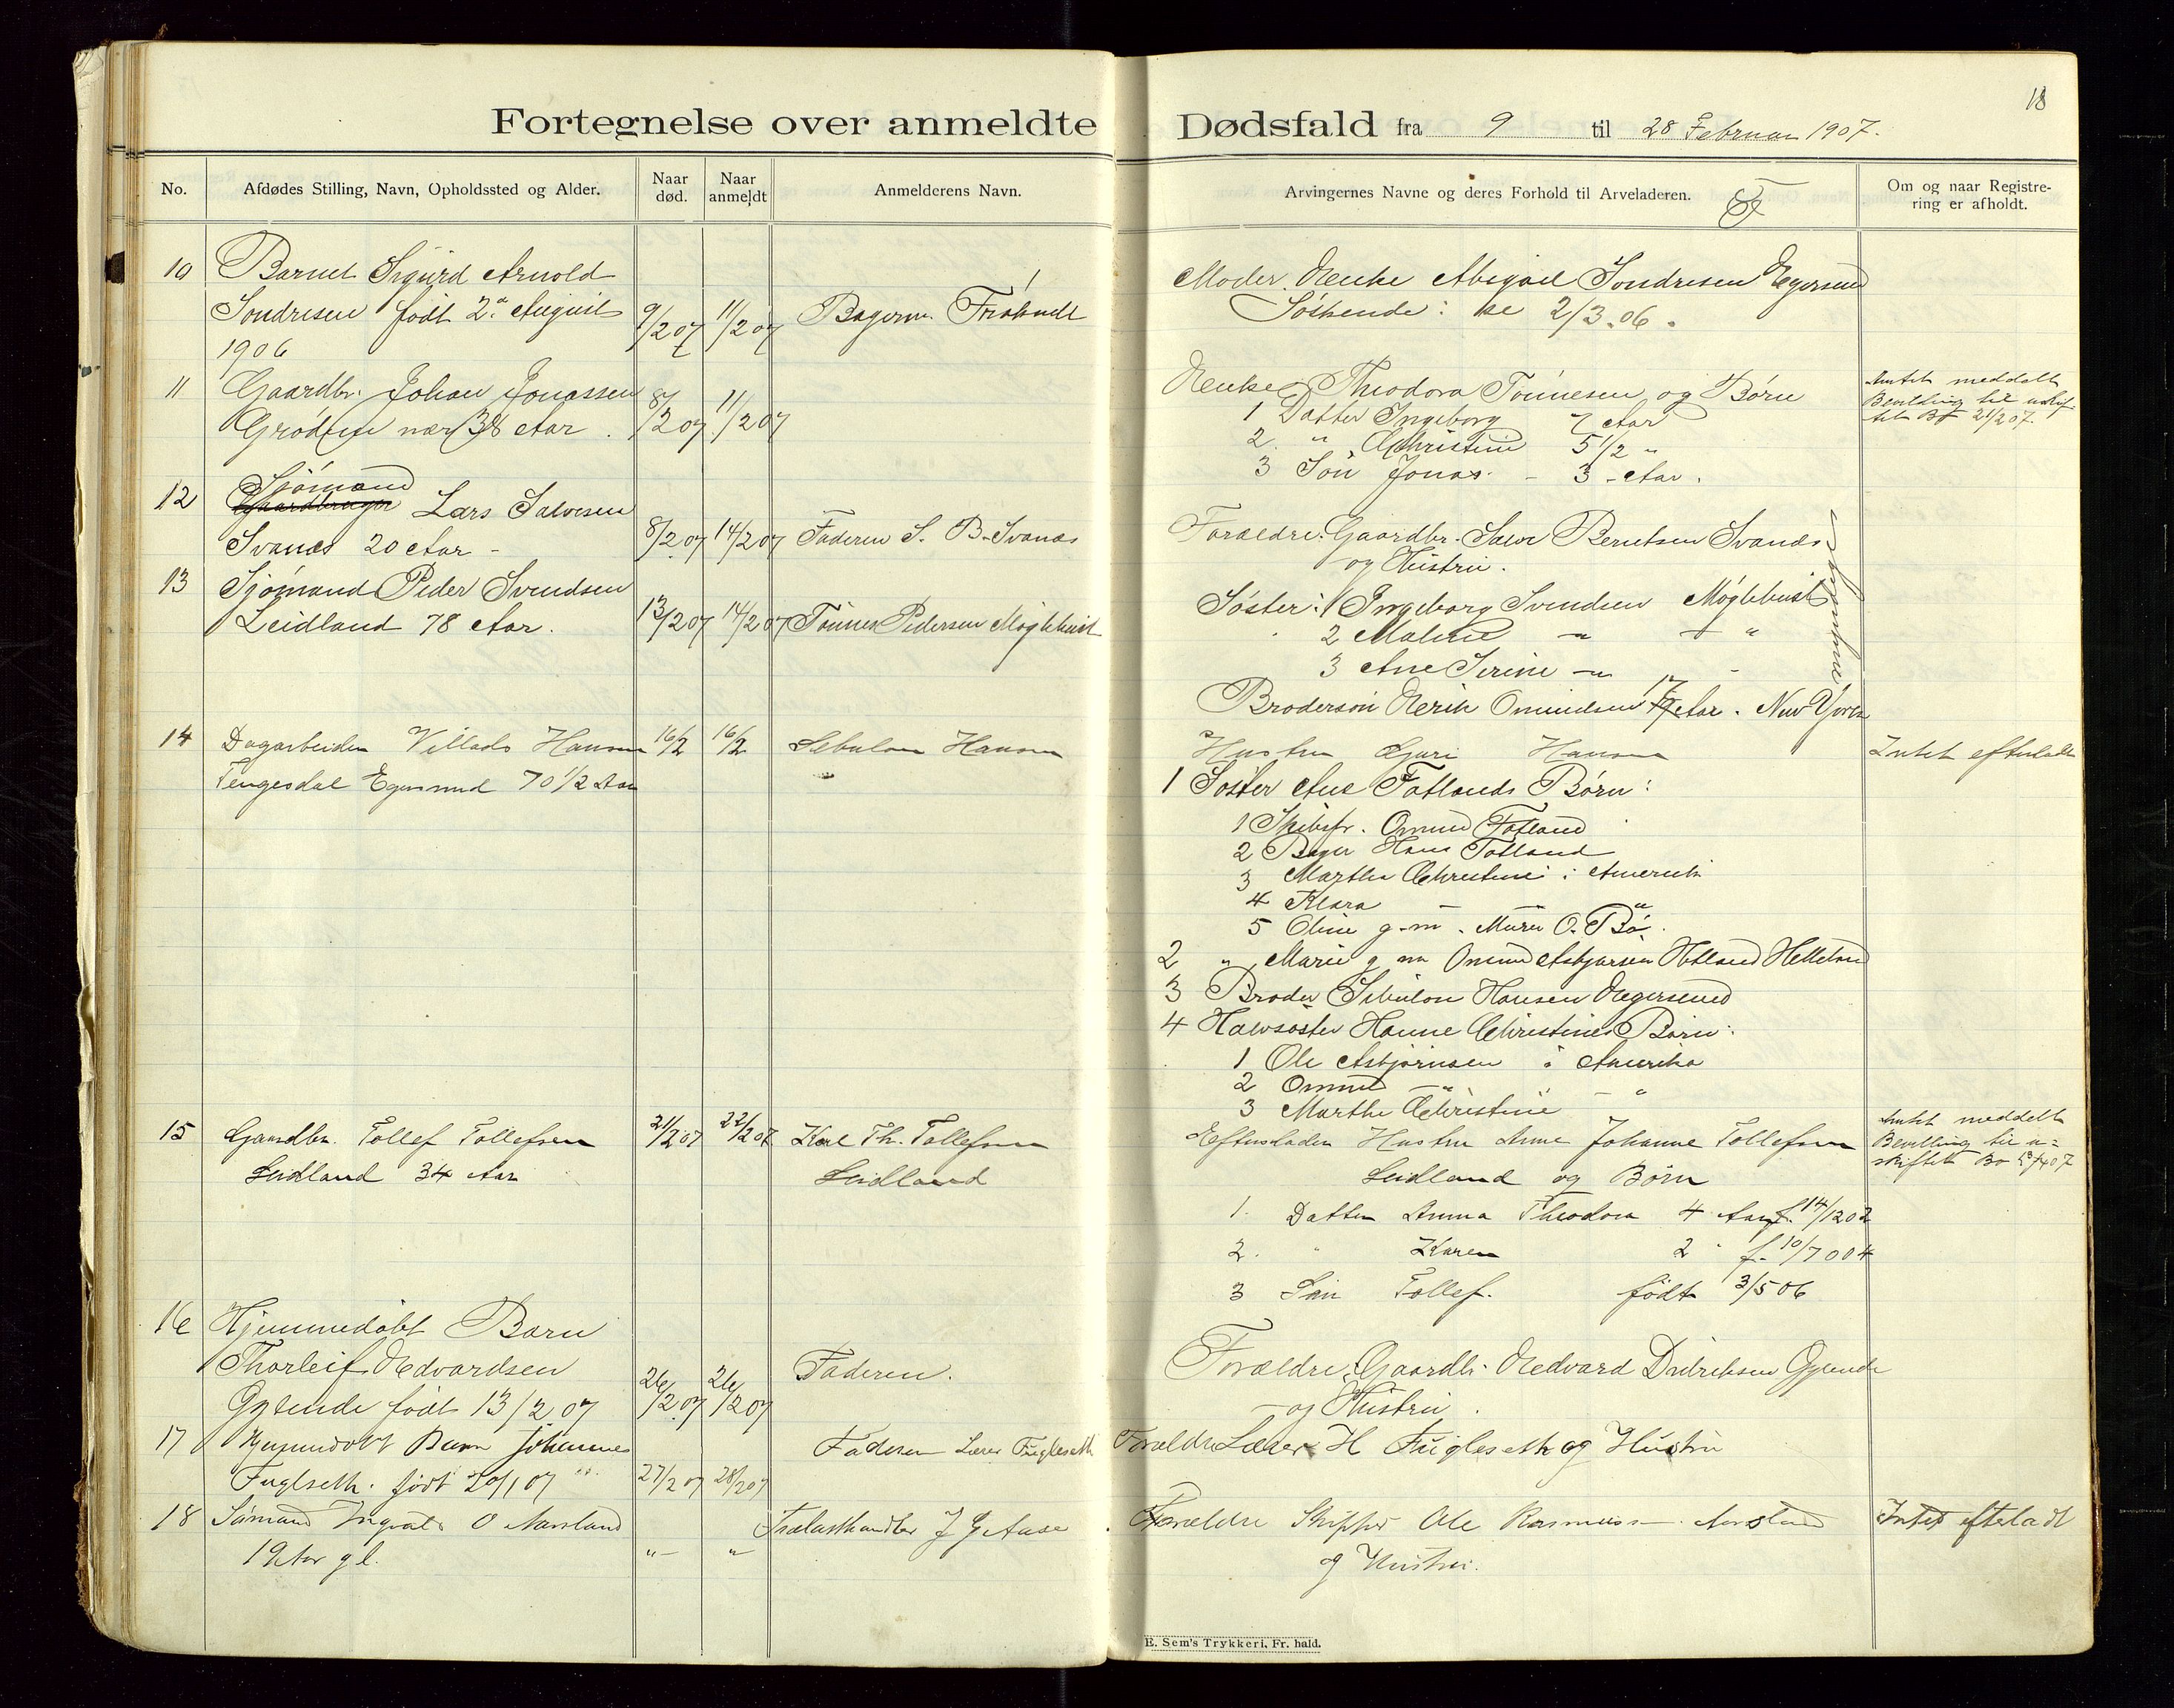 18
Fortegnelse over anmeldte Dødsfald fra 9 til 28 Februar 1907.
No.
Afdødes Stilling, Navn, Opholdssted og Alder.
Naar død.
Naar anmeldt
Anmelderens Navn.
Arvingernes Navne og deres Forhold til Arveladeren.
Om og naar Registre-
ring er afholdt.
10 Barnet Sigurd Arnold
Sondresen født 2. August 9/2 07 11/2 07 Bagerm.
1906
Moder. Enke Abigael Sondresen Egersund
Søskende: se 2/3.06.
11 Gaardbr. Johan Jonassen
Grødem nær 38 Aar. 8/2 07 11/2 07
Enke Theodora Tønnesen og Børn
1 Datter Ingeborg 7 Aar
2 " Christine 5 1/2 "
3 Søn Jonas. - 3 - Aar.
Amtet meddelt
Bevilling til uskif-
tet Bo 21/2 07.
12 Sjømand
Gaardbruger Lars Salvesen
Svanes 20 Aar - 8/2 07 14/2 07 Faderen S. B. Svanes
Forældre: Gaardbr. Salve Berntsen Svanes
og Hustru.
13 Sjømand Peder Svendsen
Leidland 78 Aar. 13/2 07 14/2 07 Tønnes Pedersen Møglehust
Søster: 1 Ingeborg Svendsen Møglehust
2 Malene - " - "
3 Ane Serine - " -
Brodersøn Erik Omundsen 17 Aar. New York
14 Dagarbeider Villads Hansen 16/2 16/2 Sebulon Hansen
Tengesdal Egersund 70 1/2 Aar
Hustru Guri Hansen
Intet efterladt
1 Søster Ane Fotlands Børn:
1 Skibsfr. Omund Fotland
2 Bager Hans Fotland
3 Marthe Christine i Amerika
4 Klara - "
5 Oline g. m. Murer O. Bø.
2 " Marie g m Omund Asbjørnsen Helleland
3 Broder Sebulon Hansen Egersund
4 Halvsøster Hanne Christines Børn:
1 Ole Asbjørnsen i Amerika
2 Omund - "
3 Marthe Christine - "
15 Gaardbr. Tollef Tollefsen 21/2 07 22/2 07 Karl Th. Tollefsen
Leidland 34 Aar Leidland
Efterlader Hustru Anne Johanne Tollefsen
Leidland og Børn
1. Datter Anna Theodora 4 Aar f. 14/12 02
2. " Karen 2 " f. 10/7 004
3 Søn Tollef. født 3/5 06
Amtet meddelt
Bevilling til u=
skiftet Bo
16 Hjemmedøbt Barn
Thorleif Edvardsen
Gyende født 13/2 07 26/2 07 26/2 07 Faderen.
Forældre: Gaardbr. Edvard Didriksen Gyende
- og Hustru.
17 Hjemmedøbt Barn Johannes
Fuglseth. født 20/1 07 27/2 07 28/2 07 Faderen Lærer Fuglseseth
Forældre Lærer H Fugleseth og Hustru
18 Sømand Ingvald O Aarsland Trælasthandler J G Aase
19 Aar gl. " - "
Forældre Skipper Ole Rasmussen Aarsland
og Hustru.
Intet efterladt
E. Sem's Trykkeri, Fr. hald.